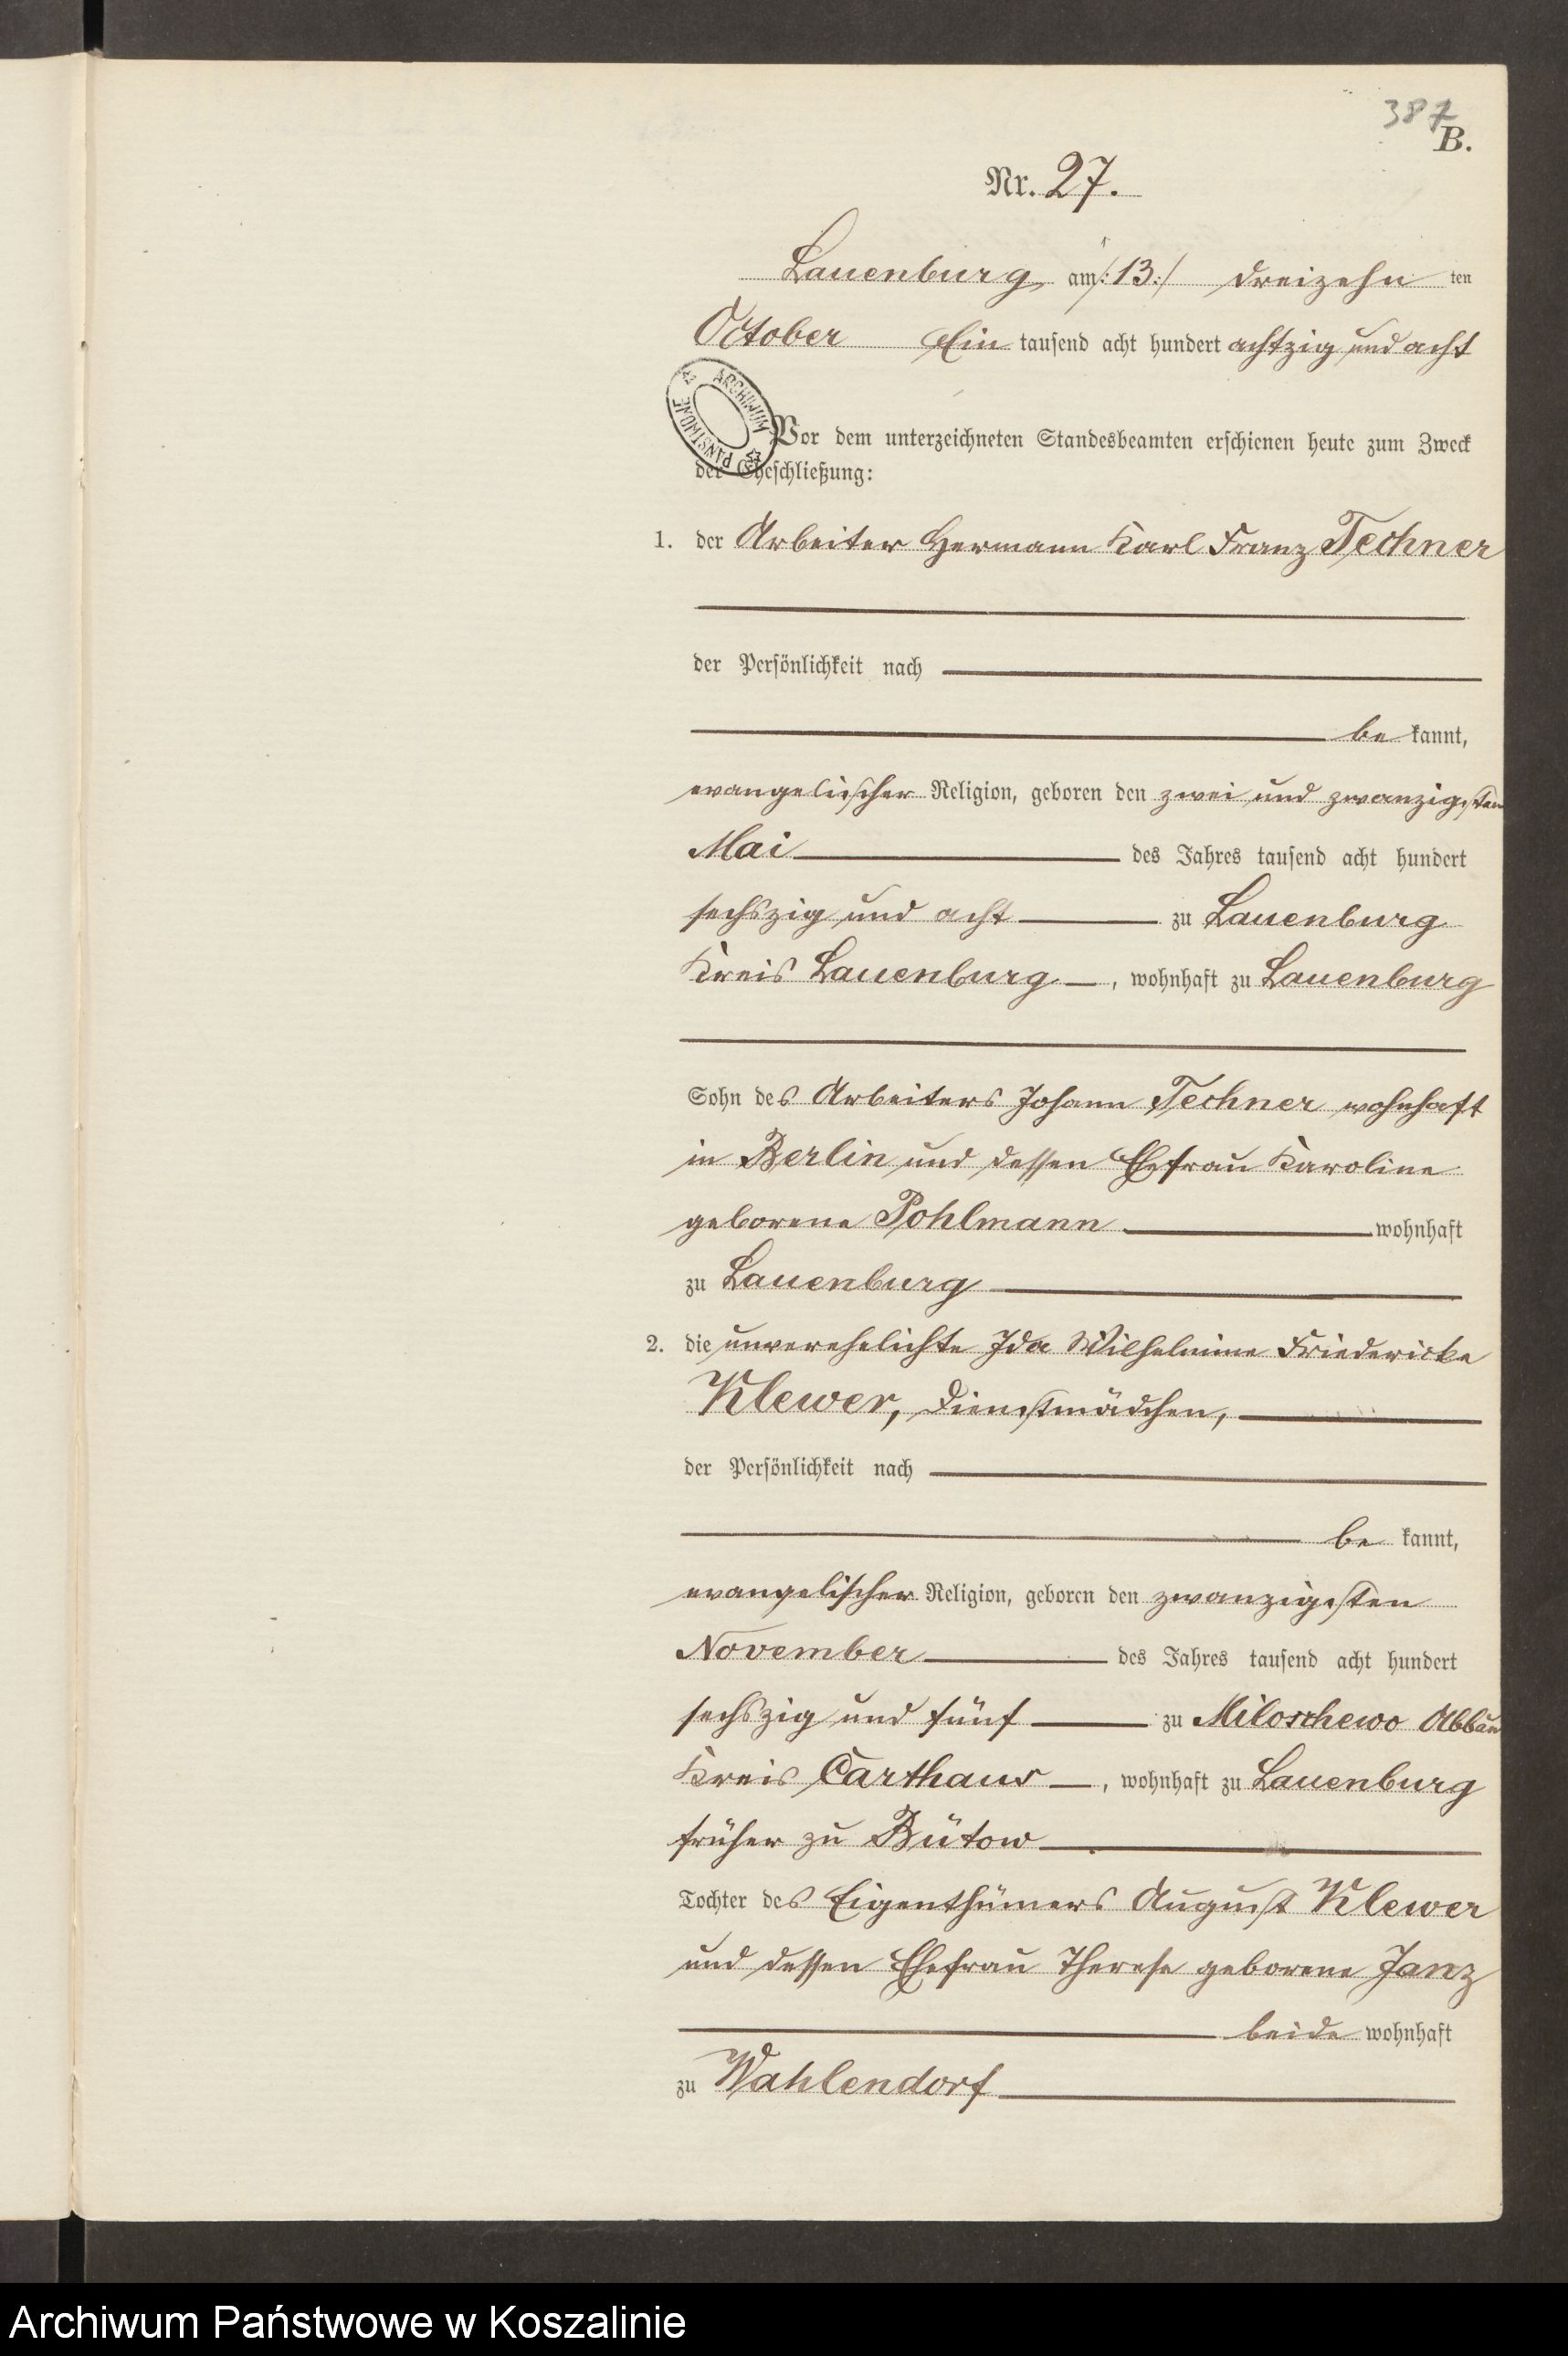 387
B.
Nr. 27.
Lauenburg, am /:13:/ dreizehn ten
October Ein tausend acht hundert achtzig und acht
ARCHIWUM PAŃSTWOWE
Vor dem unterzeichneten Standesbeamten erschienen heute zum Zweck
der Eheschließung:
1. der Arbeiter Hermann Karl Franz Techner
der Persönlichkeit nach
be kannt,
evangelischer Religion, geboren den zwei und zwanzigsten
Mai des Jahres tausend acht hundert
sechszig und acht zu Lauenburg
Kreis Lauenburg, wohnhaft zu Lauenburg
Sohn des Arbeiters Johann Techner wohnhaft
in Berlin und dessen Ehefrau Karoline
geborene Pohlmann wohnhaft
zu Lauenburg
2. die unverehelichte Ida Wilhelmine Friedericke
Klewer, Dienstmädchen,
der Persönlichkeit nach
be kannt,
evangelischer Religion, geboren den zwanzigsten
November des Jahres tausend acht hundert
sechszig und fünf zu Miloschewo Abbau
Kreis Carthaus, wohnhaft zu Lauenburg
früher zu Bütow
Tochter des Eigenthümers August Klewer
und dessen Ehefrau Therese geborene Janz
beide wohnhaft
zu Wahlendorf
Archiwum Państwowe w Koszalinie